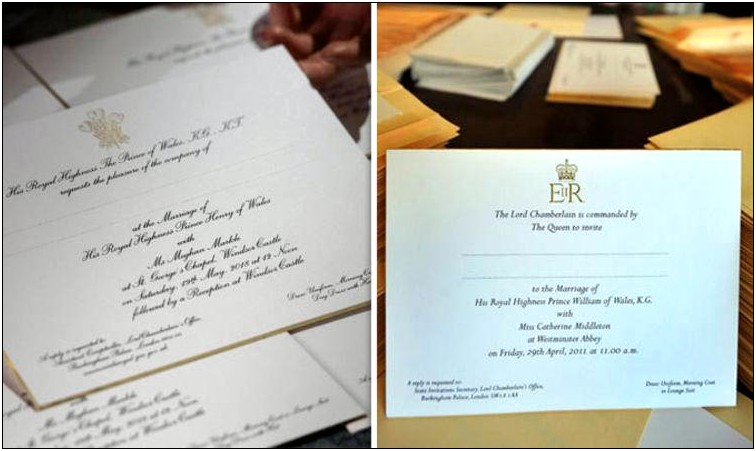 His Royal Highness The
His Royal Highness The Prince of Wales, K.G., K.T.
requests the pleasure of the company of
at the Marriage of
His Royal Highness Prince Henry of Wales
with
Ms. Meghan Markle
at St. George's Chapel, Windsor Castle
on Saturday, 19th May, 2018 at 12 Noon
followed by a Reception at Windsor Castle
A reply is requested to:
Lord Chamberlain's Office,
Buckingham Palace, London
Dress: Uniform, Morning Coat
Day Dress with
Ms. Meghan Markle
Chapel, Windsor Castle
May, 2018 at 12 Noon
Reception at Windsor Castle
Dress: Uniform, Morning Coat or Lounge Suit
Day Dress with Hat
EIIR
The Lord Chamberlain is commanded by
The Queen to invite
to the Marriage of
His Royal Highness Prince William of Wales, K.G.
with
Miss Catherine Middleton
at Westminster Abbey
on Friday, 29th April, 2011 at 11.00 a.m.
A reply is requested to:
State Invitations Secretary, Lord Chamberlain's Office,
Buckingham Palace, London SW1A 1AA
Dress: Uniform, Morning Coat
or Lounge Suit